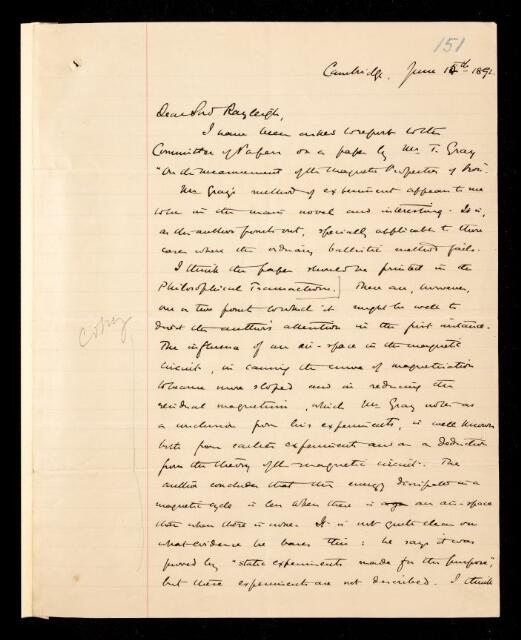 151
Cambridge. June 14th 1892
Dear Lord Rayleigh,
I have been asked to report to the
Committee of Papers on a paper by Mr. T. Gray
"On the measurement of the Magnetic Properties of Iron".
Mr. Gray's method of experiment appears to me
to be in the main novel and interesting. It is,
as the author points out, specially applicable to those
cases where the ordinary ballistic method fails.
I think the paper should be printed in the
Philosophical Transactions.] There are, however,
one or two points to which it might be well to
direct the author's attention in the first instance.
The influence of an air-space in the magnetic
circuit, in causing the curve of magnetisation
to become more sloped and in reducing the
residual magnetism, which Mr Gray notes as
a conclusion from his experiments, is well known
both from earlier experiments and as a deduction
from the theory of the magnetic circuit. The
author concludes that the energy dissipated in a
magnetic cycle is less when there is an air-space
than when there is none. It is not quite clear on
what evidence he bases this: he says it was
proved by "static experiments made for the purpose",
but these experiments are not described. I think